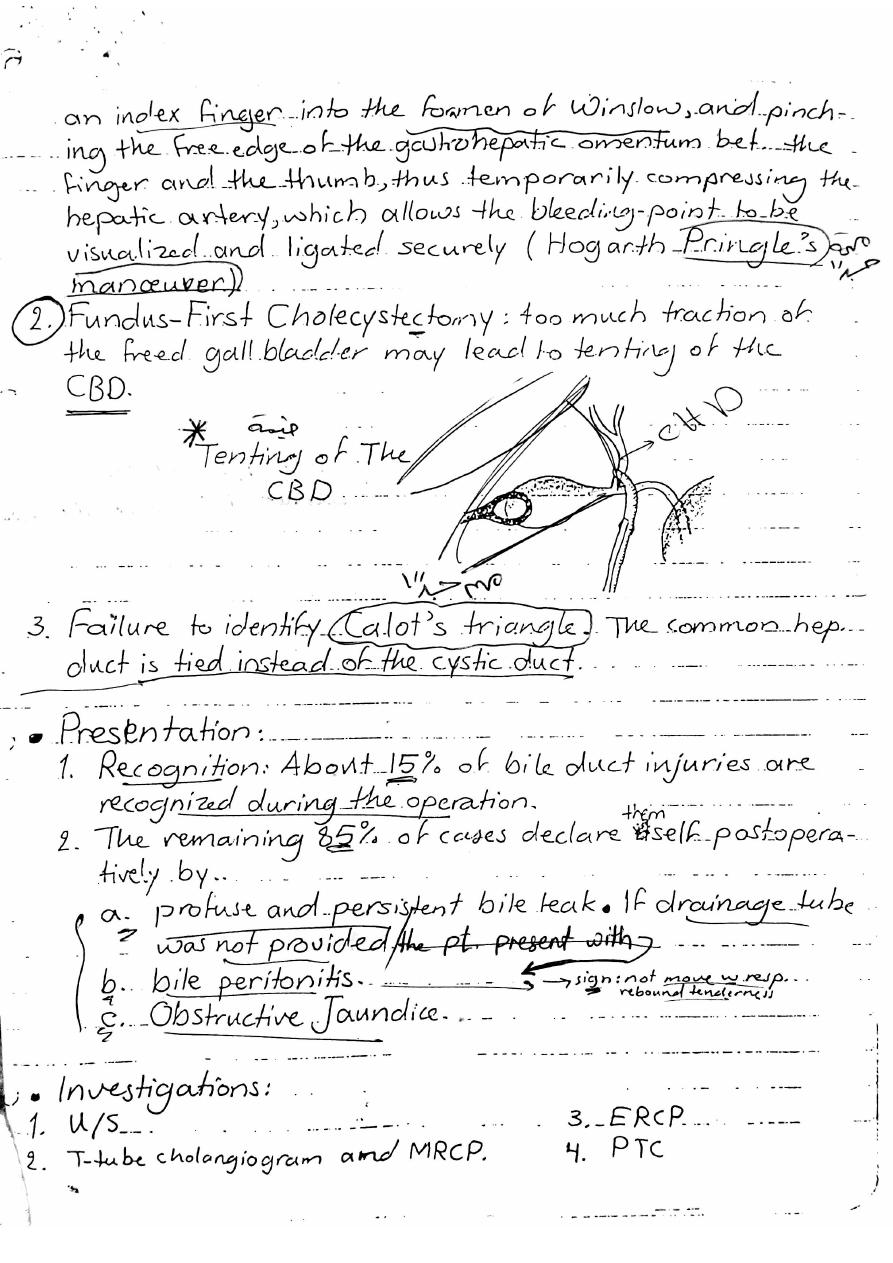 an index finger into the formen of Winslow, and pinch-
ing the free edge of the gastrohepatic omentum bet. the
finger and the thumb, thus temporarily compressing the
hepatic artery, which allows the bleeding-point to be
visualized and ligated securely (Hogarth Pringle's
manœuver)
2. Fundus-First Cholecystectomy: too much traction of
the freed gall bladder may lead to tenting of the
CBD.
CHD
* Tenting of The
CBD
3. Failure to identify Calot's triangle. The common hep.
duct is tied instead of the cystic duct.
• Presentation:
1. Recognition: About 15% of bile duct injuries are
recognized during the operation.
2. The remaining 85% of cases declare themself postopera-
tively by..
a. profuse and persistent bile leak. If drainage tube
was not provided/the pt. present with
b. bile peritonitis. → sign: not move w resp.
rebound tenderness
c. Obstructive Jaundice.
• Investigations:
1. U/S
3. ERCP
2. T-tube cholangiogram and MRCP.
4. PTC